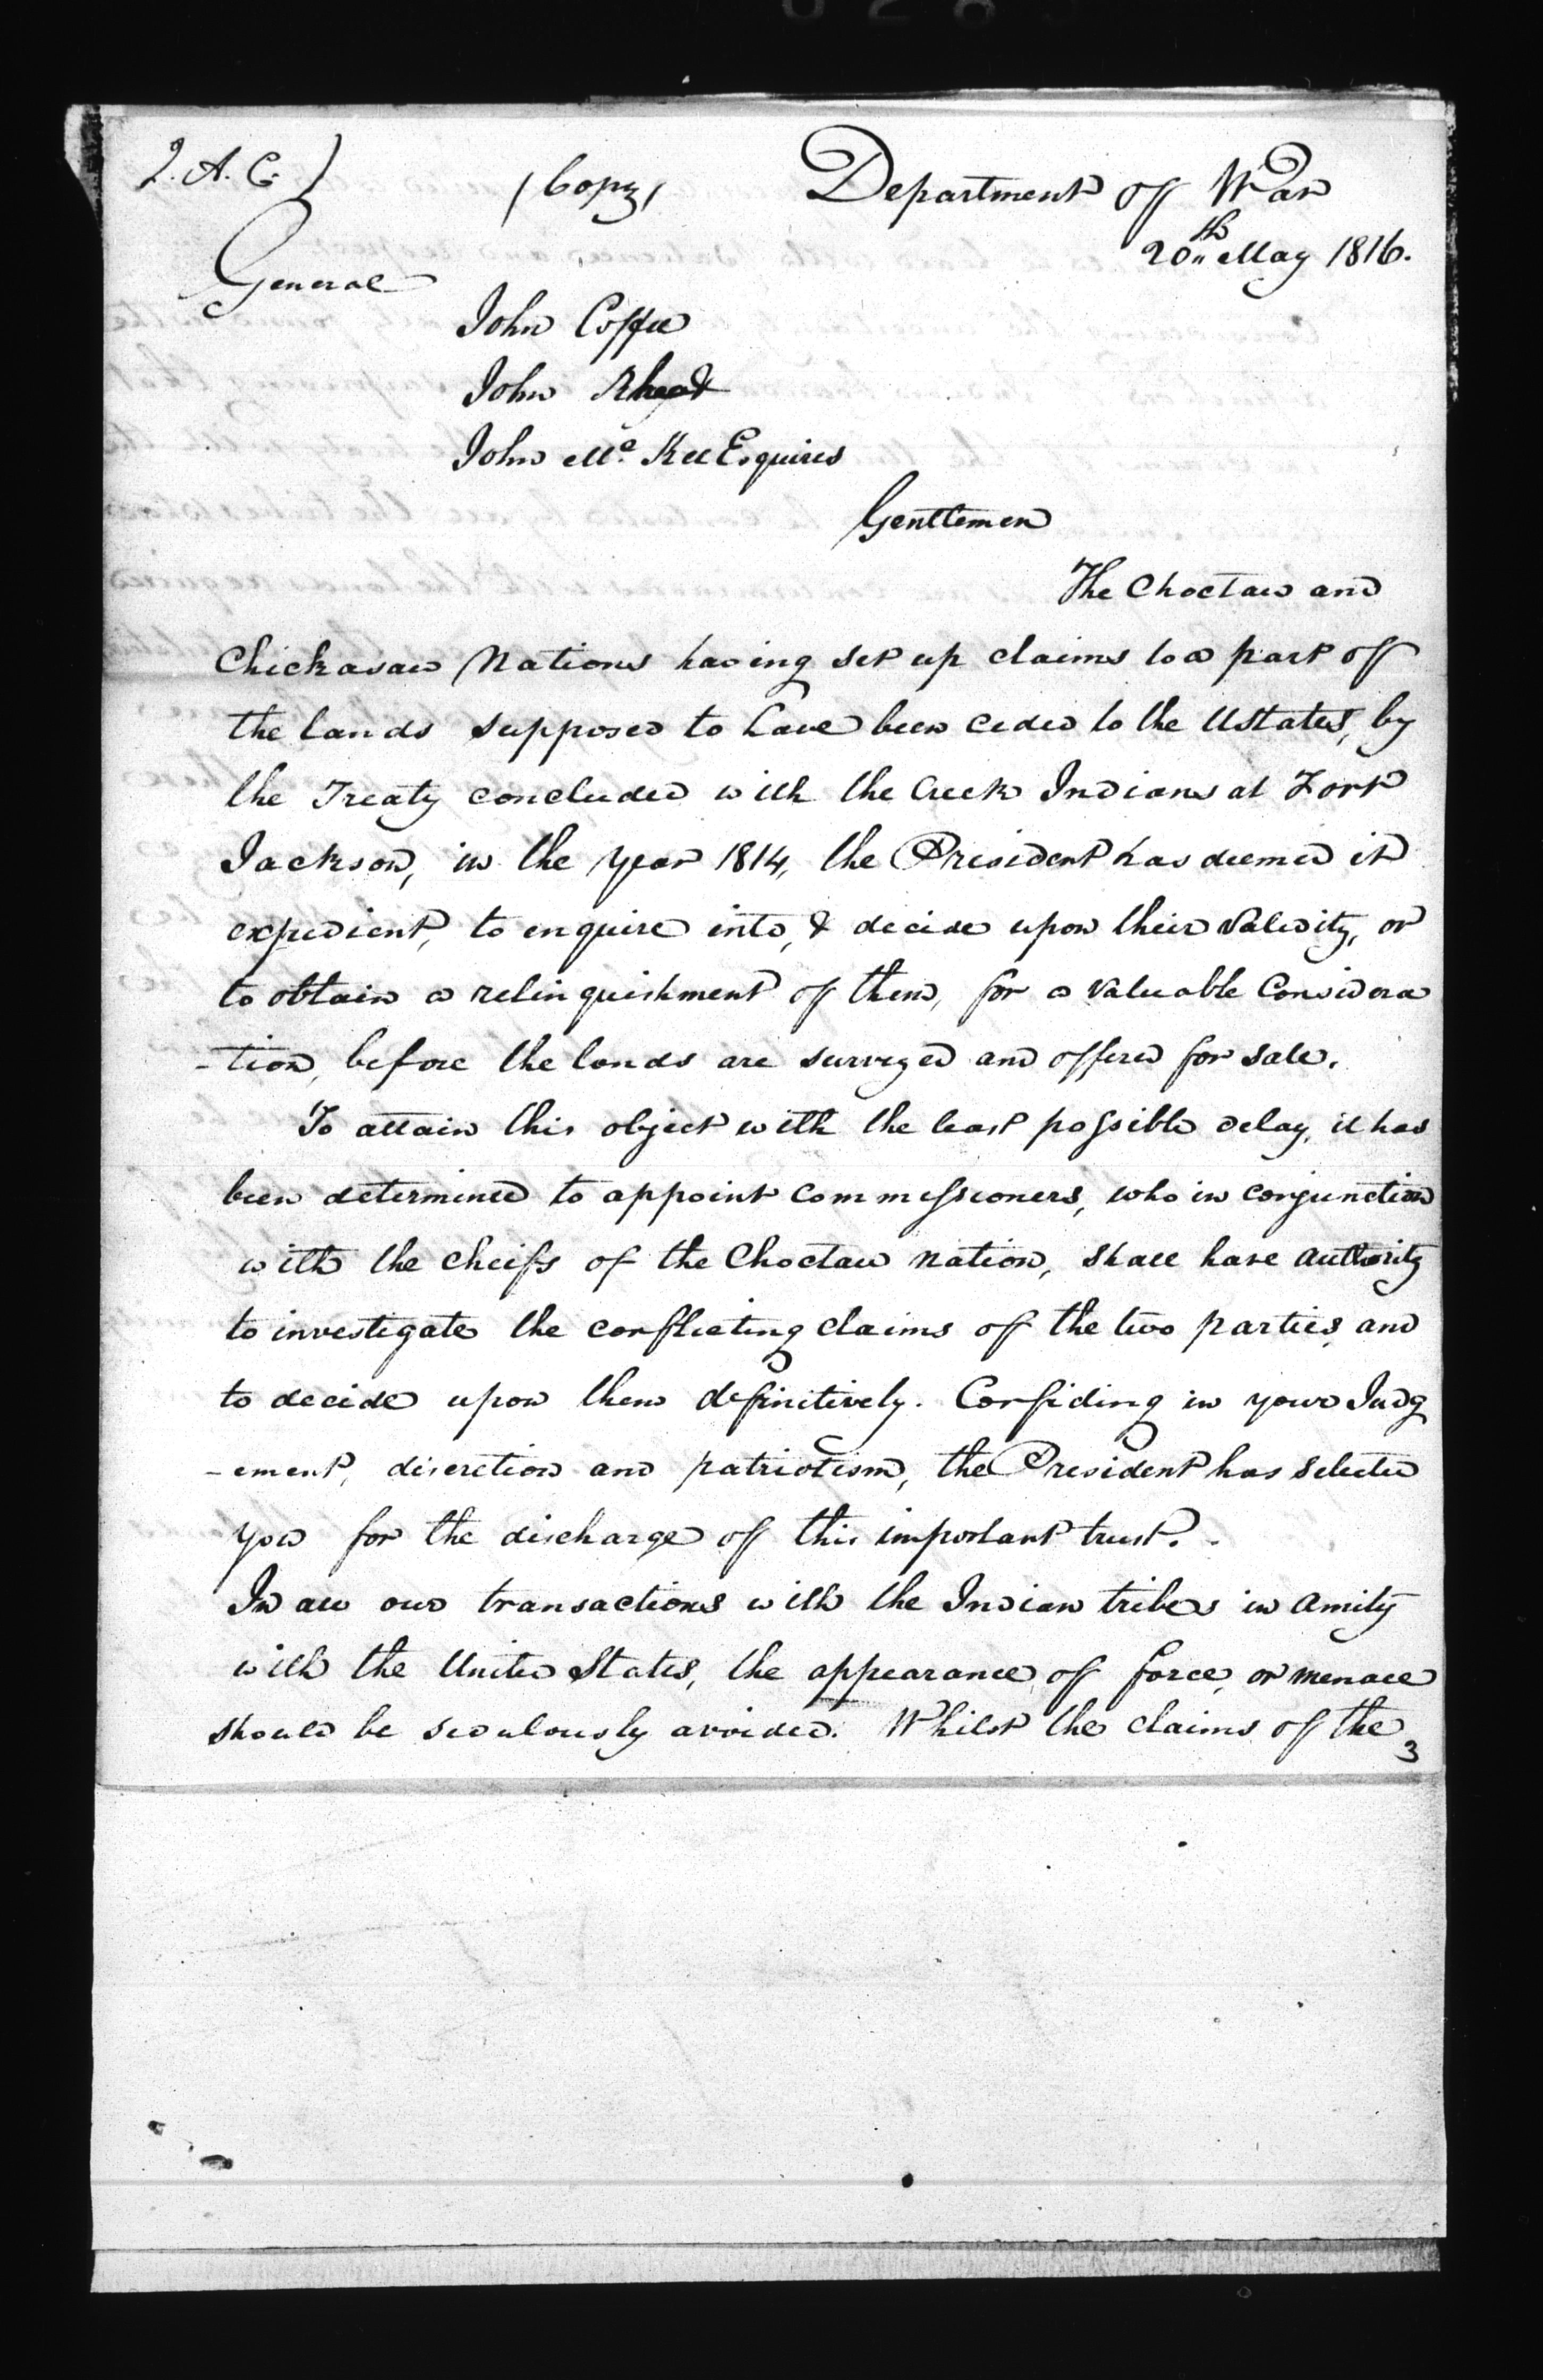 J. A. C.)
(Copy)
Department of War
20th May 1816.
General
John Coffee
John Rhea &
John Mc Kee Esquires
Gentlemen
The Choctaw and
Chickasaw Nations having set up claims to a part of
the lands supposed to have been ceded to the U States, by
the Treaty concluded with the Creek Indians at Fort
Jackson, in the year 1814, the President has deemed it
expedient, to enquire into, & decide upon their validity, or
to obtain a relinquishment of them, for a valuable Considera
-tion, before the lands are surveyed and offered for sale.
To attain this object with the least possible delay, it has
been determined to appoint commissioners, who in conjunction
with the cheifs of the Choctaw nation, shall have authority
to investigate the conflicting claims of the two parties, and
to decide upon them definitively. Confiding in your Judg
-ement, discretion and patriotism, the President has selected
you for the discharge of this important trust.
In all our transactions with the Indian tribes in amity
with the United States, the appearance of force, or menace
should be sedulously avoided. Whilst the claims of the
3